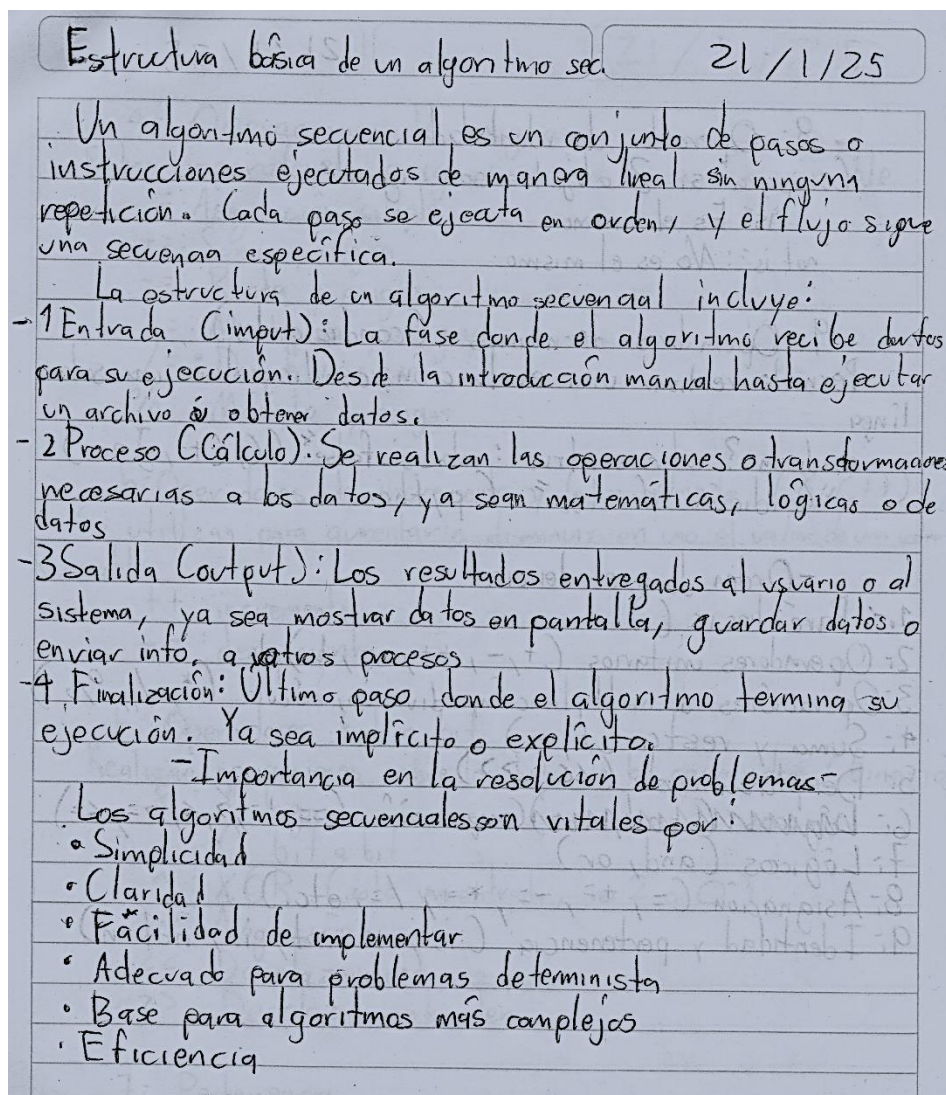 Estructura básica de un algoritmo sec. 21/1/25
Un algoritmo secuencial, es un conjunto de pasos o
instrucciones ejecutados de manera lineal sin ninguna
repetición. Cada paso se ejecuta en orden, y el flujo sigue
una secuencia específica.
La estructura de un algoritmo secuencial incluye:
- 1 Entrada (imput): La fase donde el algoritmo recibe datos
para su ejecución. Desde la introducción manual hasta ejecutar
un archivo obtener datos.
- 2 Proceso (Cálculo): Se realizan las operaciones o transformaciones
necesarias a los datos, ya sean matemáticas, lógicas o de
datos
- 3 Salida (output): Los resultados entregados al usuario o al
sistema, ya sea mostrar datos en pantalla, guardar datos o
enviar info. a otros procesos
- 4 Finalización: Último paso donde el algoritmo termina su
ejecución. Ya sea implícito o explícito.
- Importancia en la resolución de problemas -
Los algoritmos secuenciales son vitales por:
• Simplicidad
• Claridad
• Facilidad de implementar
• Adecuado para problemas determinista
• Base para algoritmos más complejos
• Eficiencia